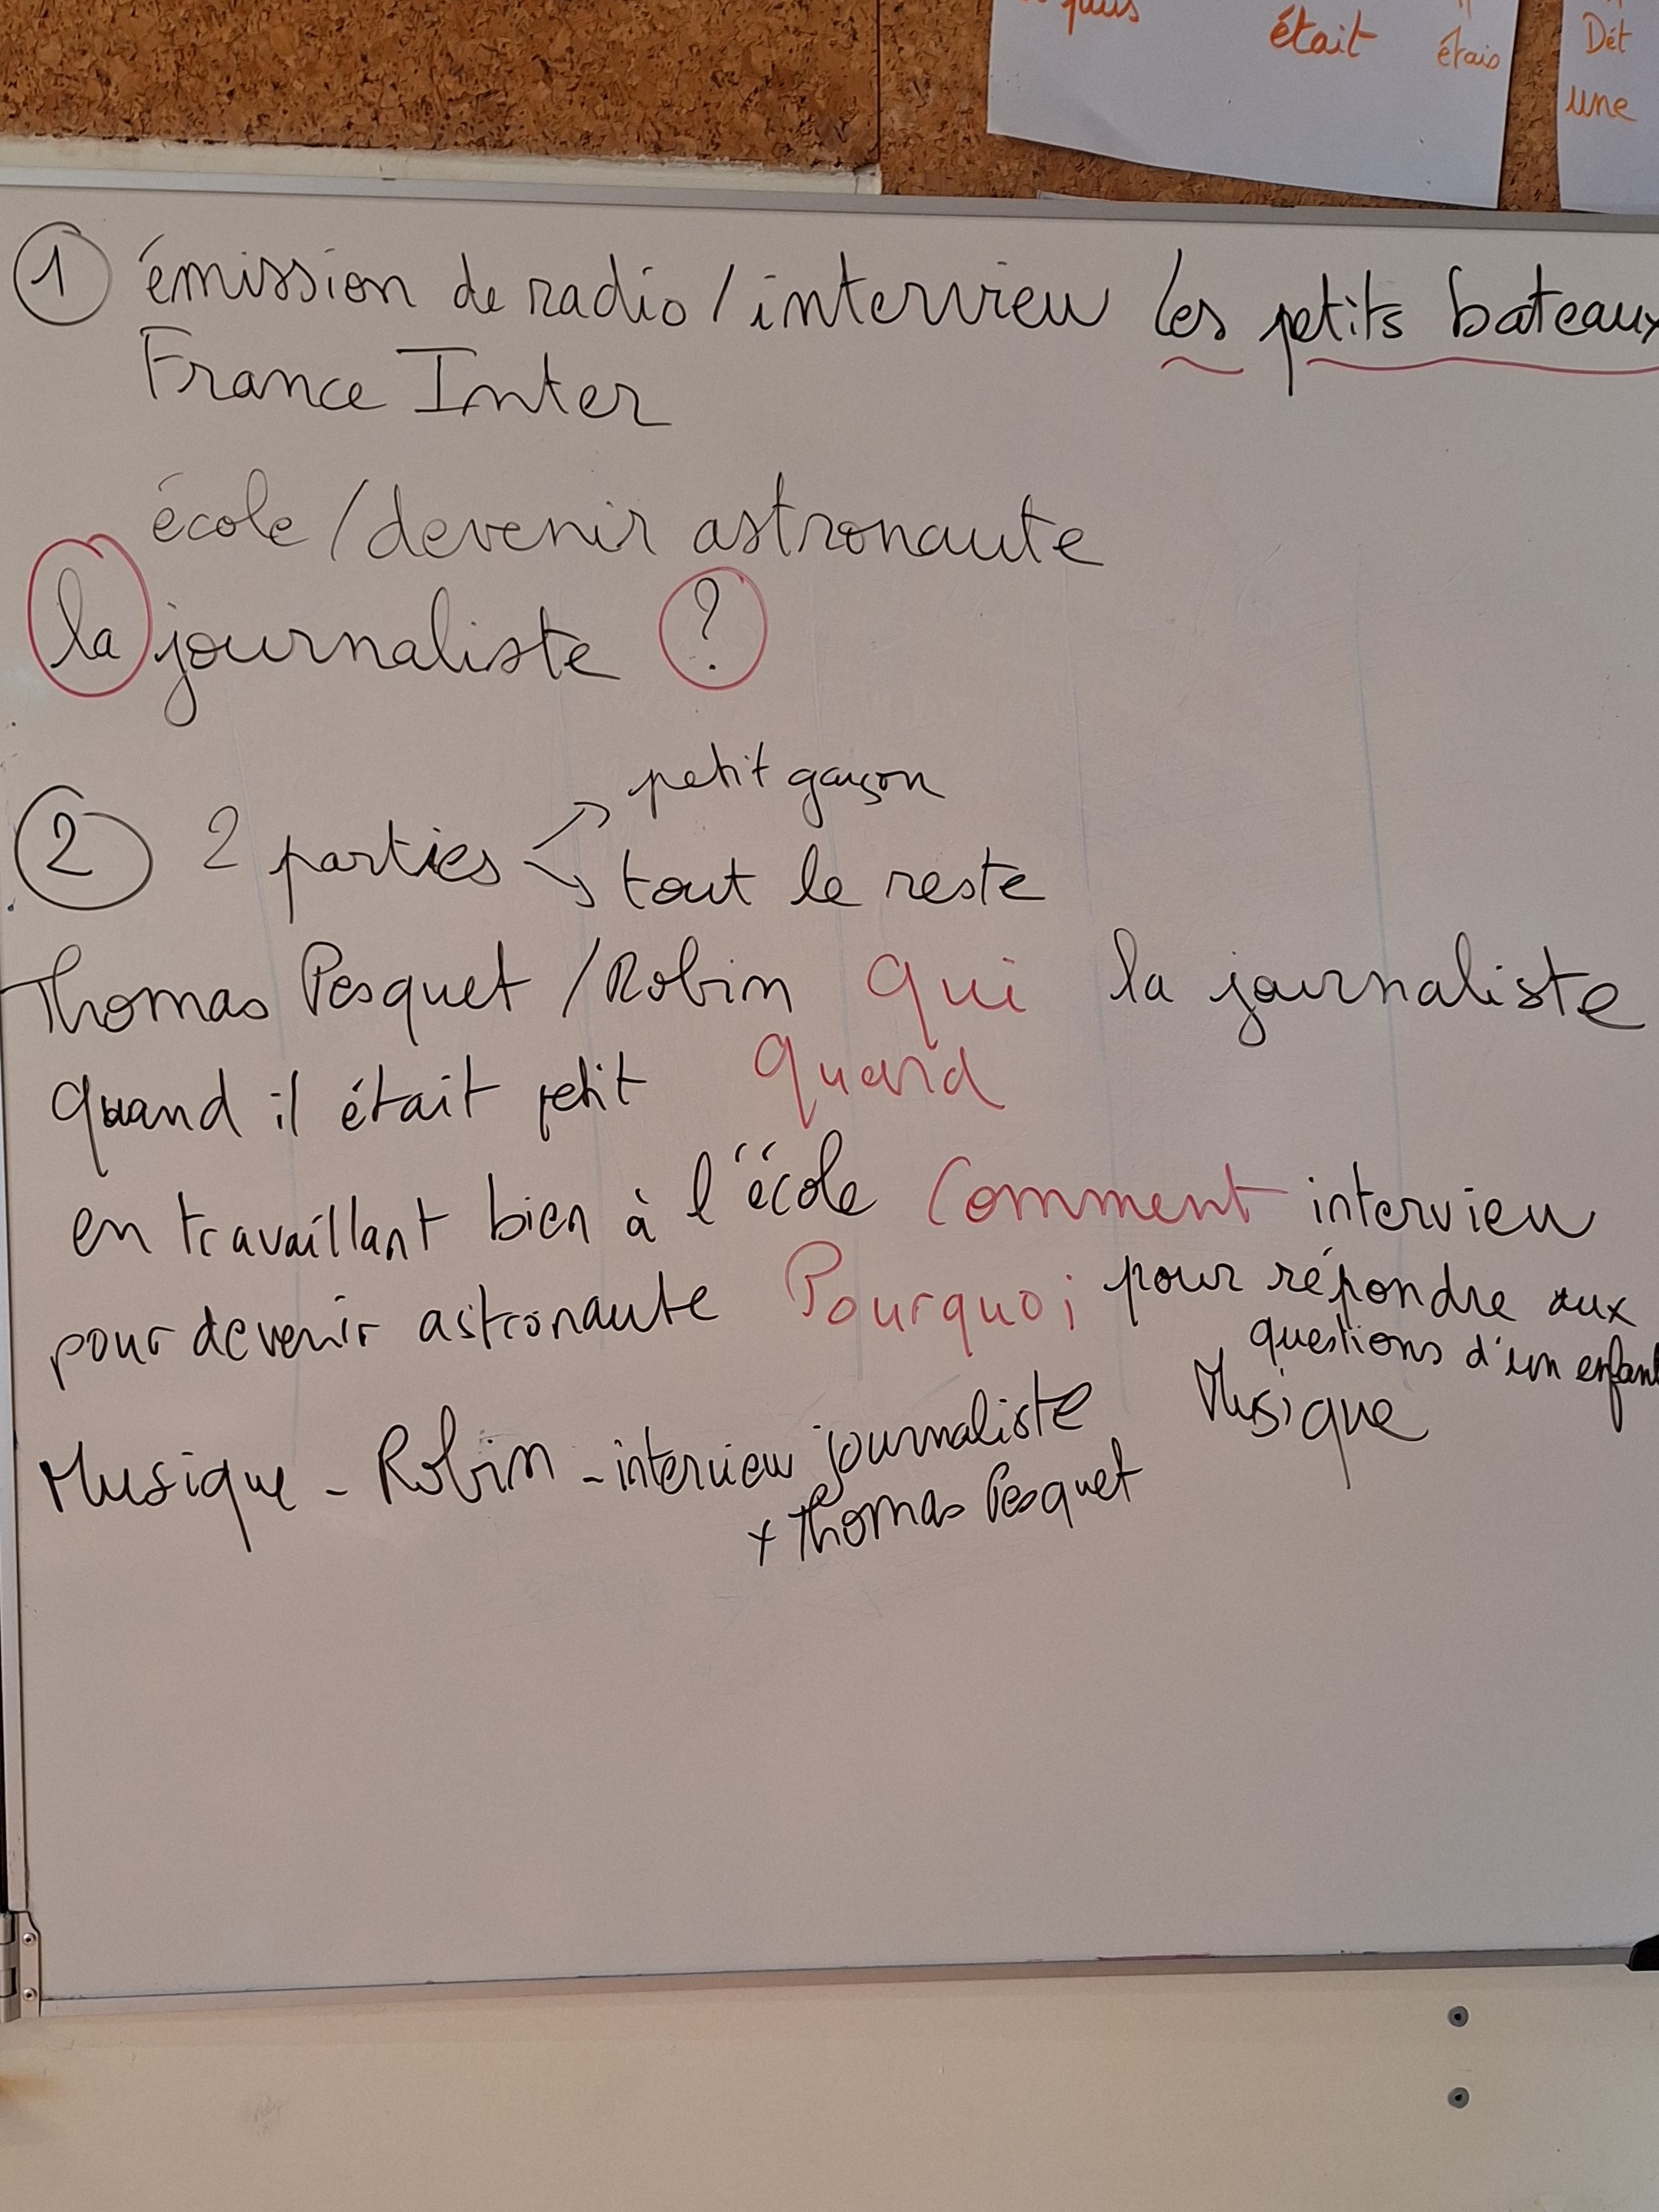 était étais Dét
une
1 émission de radio / interview les petits bateaux
France Inter
école / devenir astronaute
la journaliste ?
petit garçon
2 2 parties
tout le reste
Thomas Pesquet / Robin Qui la journaliste
quand il était petit Quand
en travaillant bien à l'école Comment interview
pour devenir astronaute Pourquoi pour répondre aux
questions d'un enfant
Musique - Robin - interview journaliste Musique
+ Thomas Pesquet